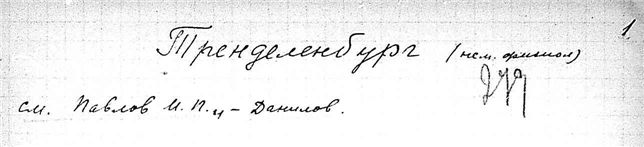 1
Тренделенбург (нем. физиол)
см. Павлов И. П. – Данилов.